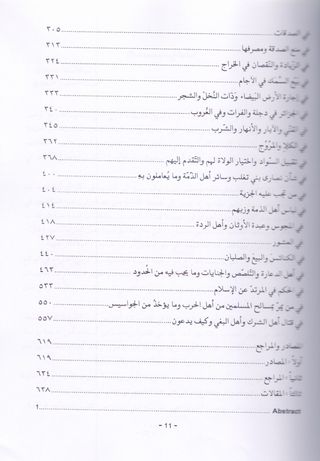 في الصدقات ٣٠٥
في منع الصدقة ومصرفها ٣١٣
في الزيادة والنقصان في الخراج ٣٢٤
في بيع السمك في الآجام ٣٣١
في إجارة الأرض البيضاء وذات النخل والشجر ٣٣٣
في الجزائر في دجلة والفرات وفي الغروب ٣٤٠
في القني والآبار والأنهار والشرب ٣٤٥
في الكلأ والمروج ٣٦٢
في تقبيل السواد واختيار الولاة لهم والتقدم إليهم ٣٦٨
في شأن نصارى بني تغلب وسائر أهل الذمة وما يعاملون به ٤٠٠
في من تجب عليه الجزية ٤٠٤
في لباس أهل الذمة وزيهم ٤١٤
في المجوس وعبدة الأوثان وأهل الردة ٤١٨
في العشور ٤٢٧
في الكنائس والبيع والصلبان ٤٤٠
في أهل الدعارة والتلصص والجنايات وما يجب فيه من الحدود ٤٦٣
في الحكم في المرتد عن الإسلام ٥٣٣
في من يمر بمسالح المسلمين من أهل الحرب وما يؤخذ من الجواسيس ٥٥٠
في قتال أهل الشرك وأهل البغي وكيف يدعون ٥٥٧
المصادر والمراجع ٦١٩
أولاً: المصادر ٦١٩
ثانياً: المراجع ٦٣٤
ثالثاً: المقالات ٦٣٨
Abstract 1
- ١١ -